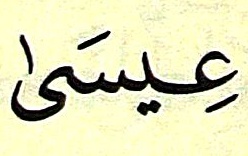 عِيسَىٰ